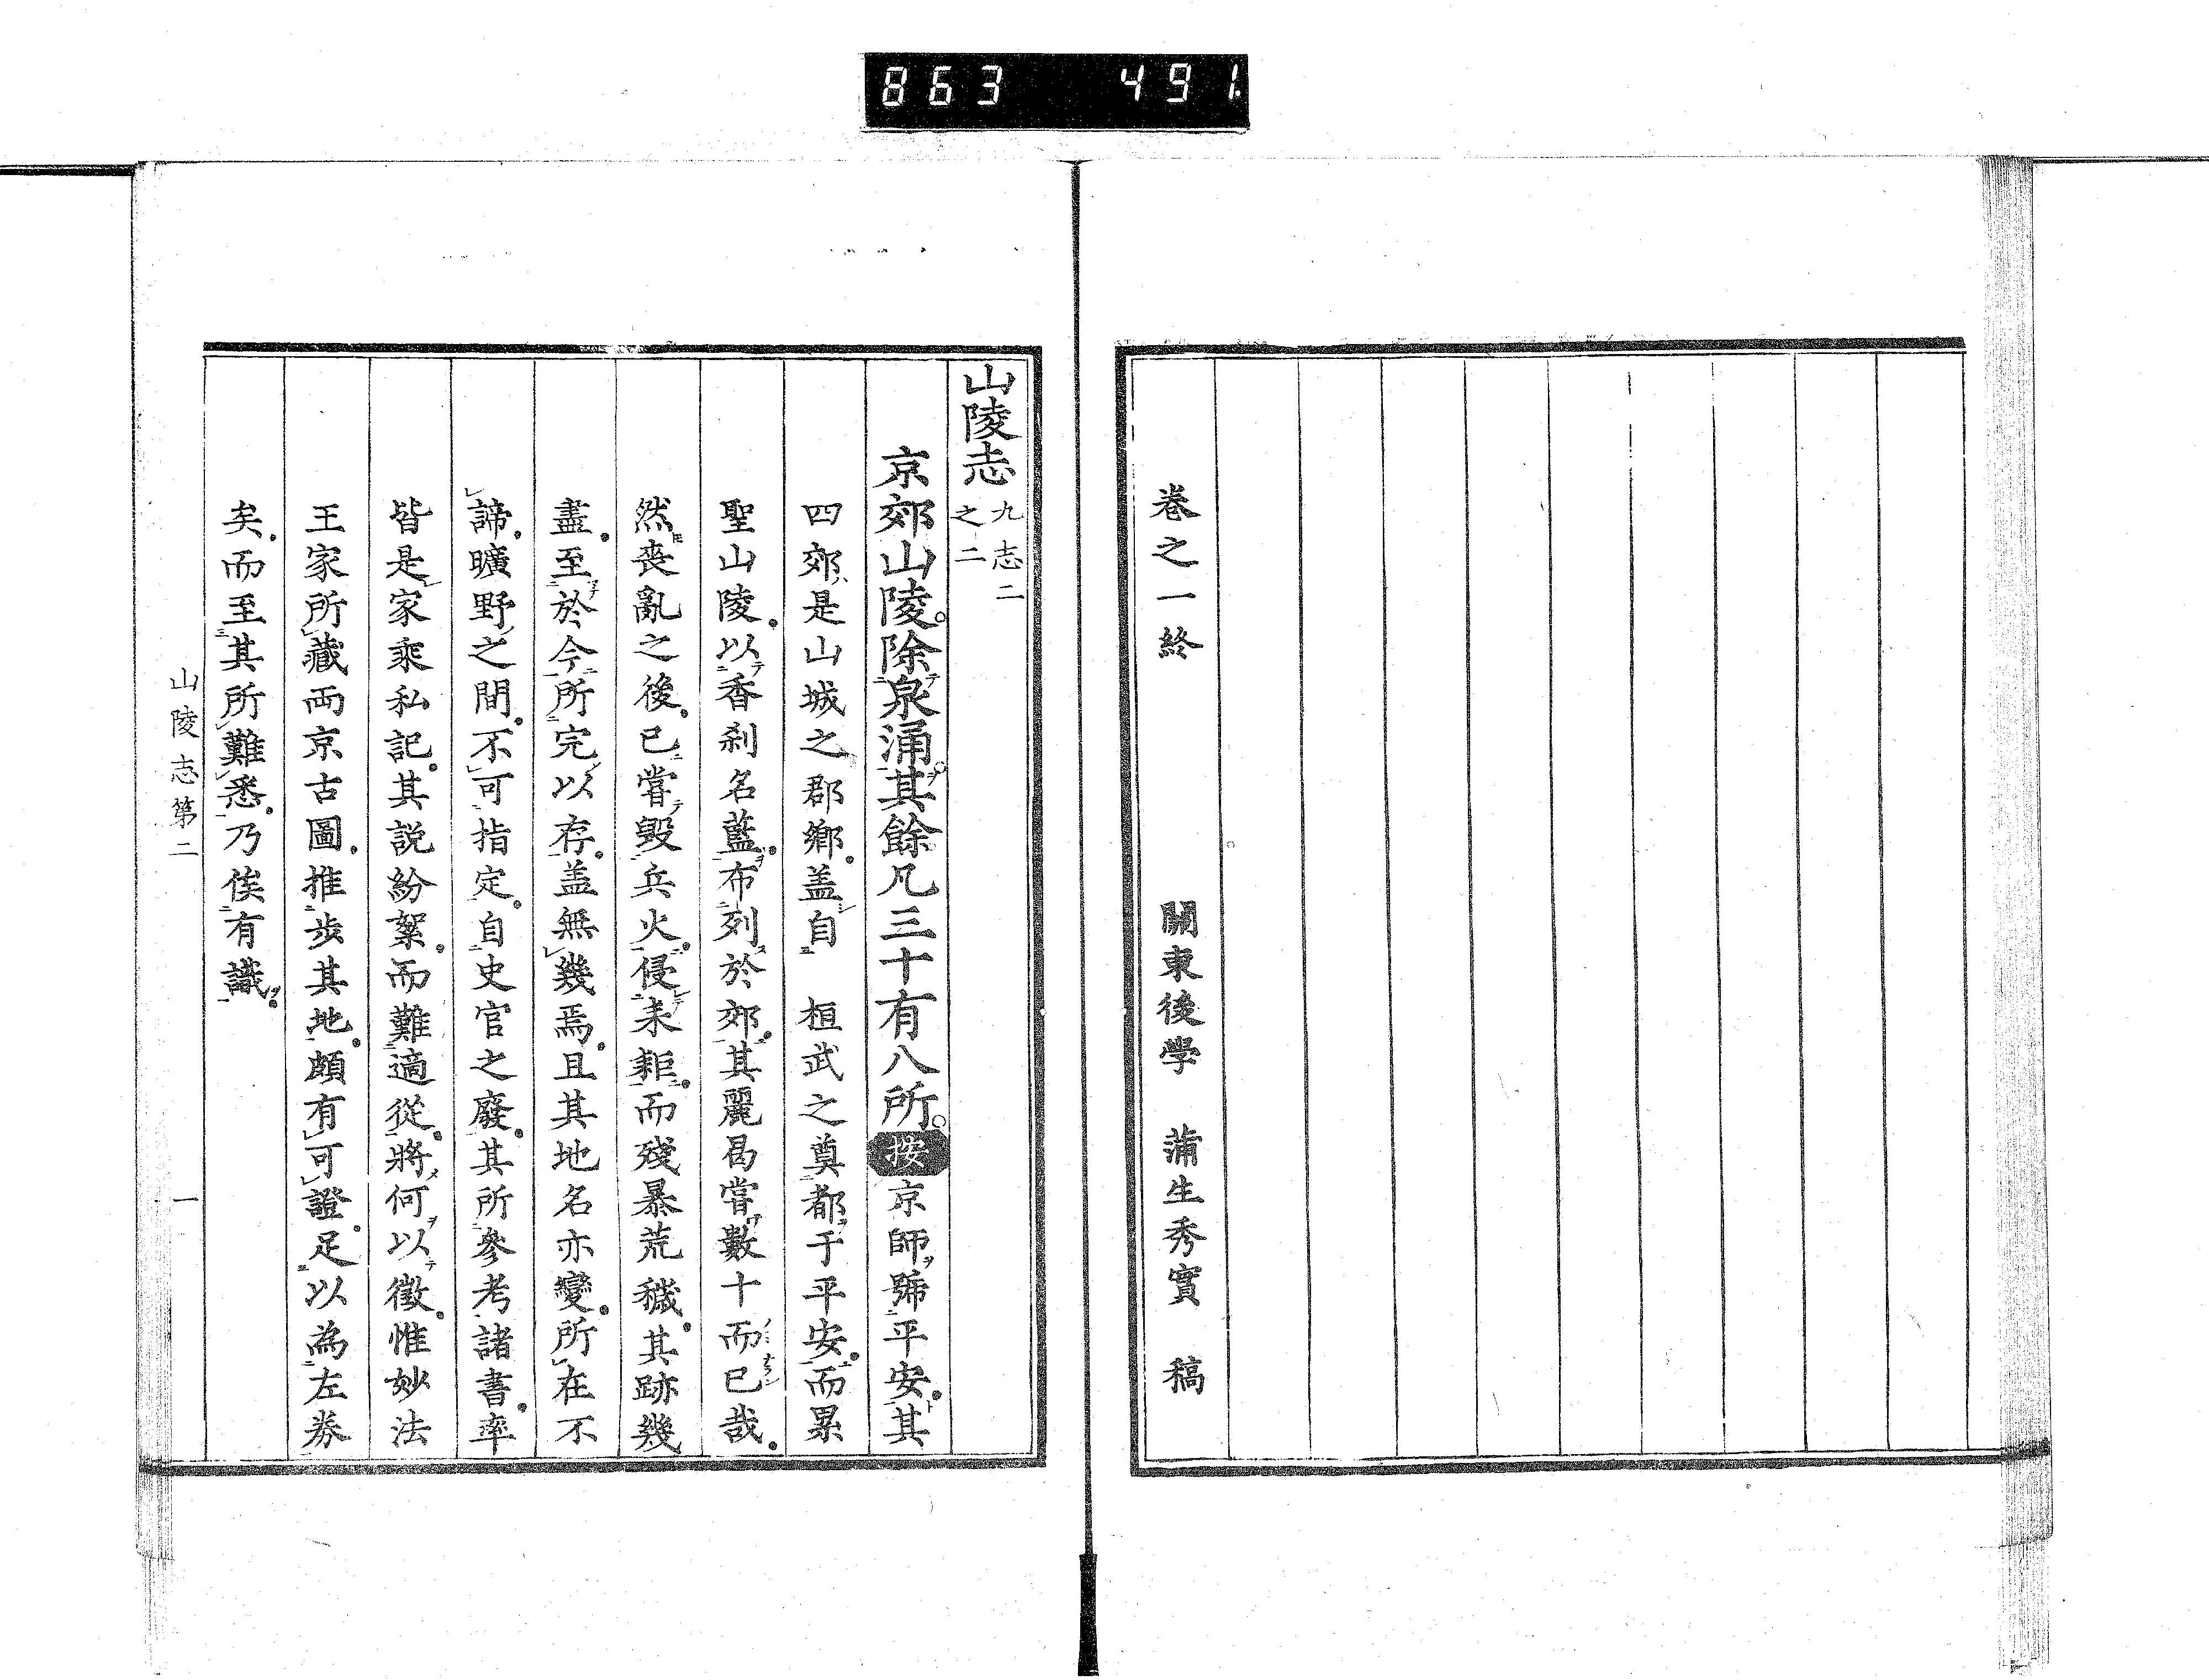 863 491.
卷之一終 關東後學 蒲生秀實 稿
山陵志 九志二之二
京郊山陵。除泉涌。其餘凡三十有八所。按京師號平安。其
四郊是山城之郡鄉。盖自 桓武之奠都于平安。而累
聖山陵。以香刹名藍。布列於郊。其麗曷嘗數十而已哉。
然喪亂之後。已嘗毀兵火。侵耒耟。而殘暴荒穢。其跡幾
盡。至於今所完以存。盖無幾焉。且其地名亦變。所在不
諦。曠野之間。不可指定。自史官之廢。其所參考諸書。率
皆是家乘私記。其説紛絮。而難適從。將何以徵。惟妙法
王家所藏両京古圖。推步其地。頗有可證。足以為左券
矣。而至其所難悉。乃俟有識。
山陵志第二 一